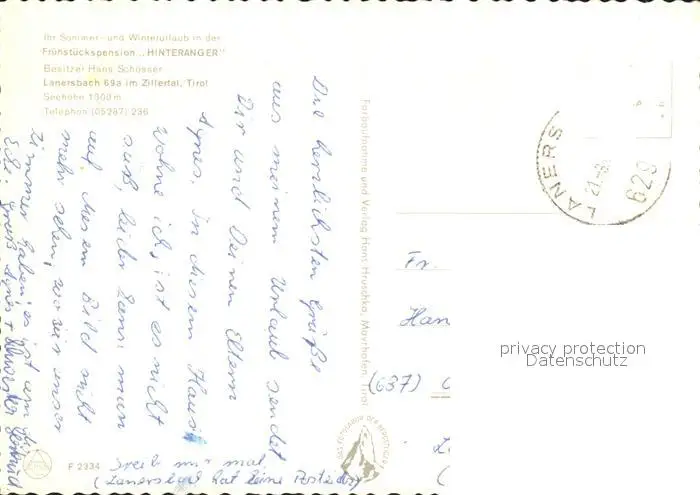 Ihr Sommer- und Winterurlaub in der
Frühstückspension „HINTERANGER"
Besitzer Hans Schösser
Lanersbach 69a im Zillertal, Tirol
Seehöhe 1300 m
Telephon (05287) 236
Die herzlichsten Grüße
aus meinem Urlaub sendet
Dir und Deinen Eltern
Agnes. In diesem Haus
wohne ich, ist es nicht
süß, leider kann man
auf diesem Bild nicht
mehr sehen, wo wir unser
Zimmer haben, es ist am
Ecke. Gruß Agnes + Schwester
F 2334
Schreib mir mal
(Lanersbach hat keine Postleitz)
Farbaufnahme und Verlag Hans Hruschka, Mayrhofen, Tirol
LANERS
21.-8
629
Fr.
Han
(637)
privacy protection
Datenschutz